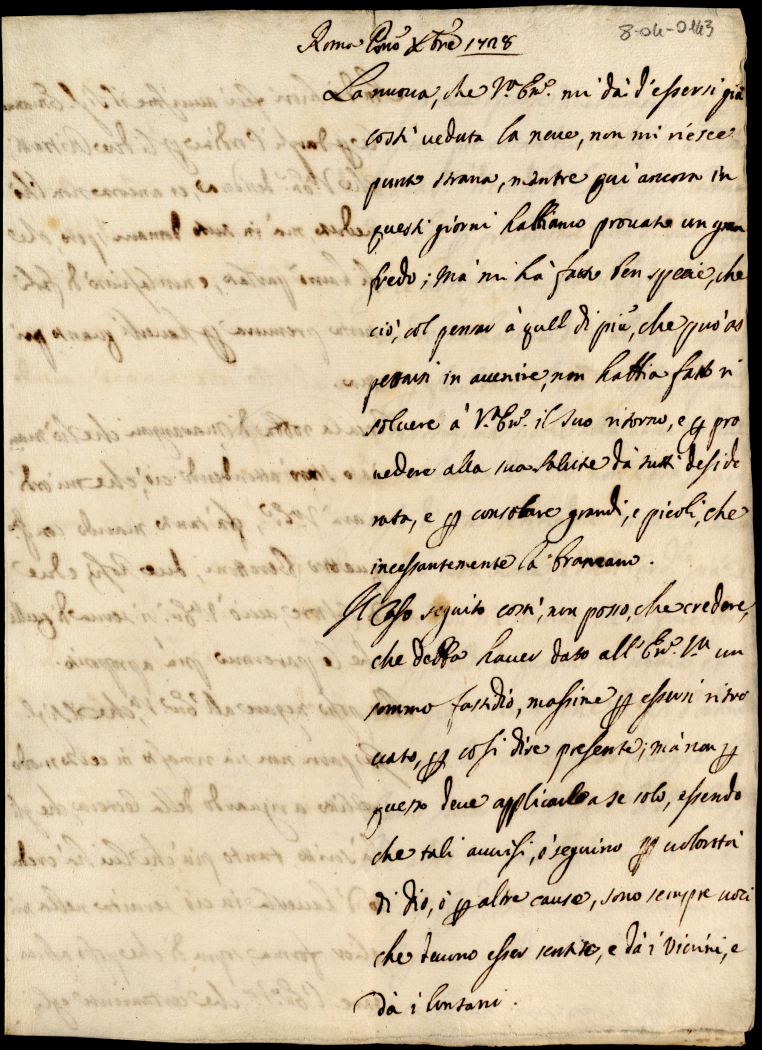 8-04-0143
Roma Pmo Xbre 1728
La nuova, che V.ra Em.a mi dà d'essersi già
costì veduta la neve, non mi riesce
punto strana, mentre quì ancora in
questi giorni habbiamo provato un gran
fredo; mà mi hà fatto ben specie, che
ciò, col pensar à quell di più, che può as
pettarsi in avvenire, non habbia fatto ri
solvere à V.ra Em.a il suo ritorno, e p pro
vedere alla sua salute dà tutti deside
rata, e p consolare grandi, e picoli, che
incessantemente la bramano.
Il Caso seguito costì, non posso, che credere,
che debba haver dato all'Em.a V.ra un
sommo fastidio, massime p essersi ritro
vato, p così dire presente; mà non p
questo deve applicarlo a se solo, essendo
che tali avvisi, ò seguino p volontà
di Dio, ò p altre cause, sono sempre voci
che devono esser sentite, e dà i Vicini, e
dà i lontani.